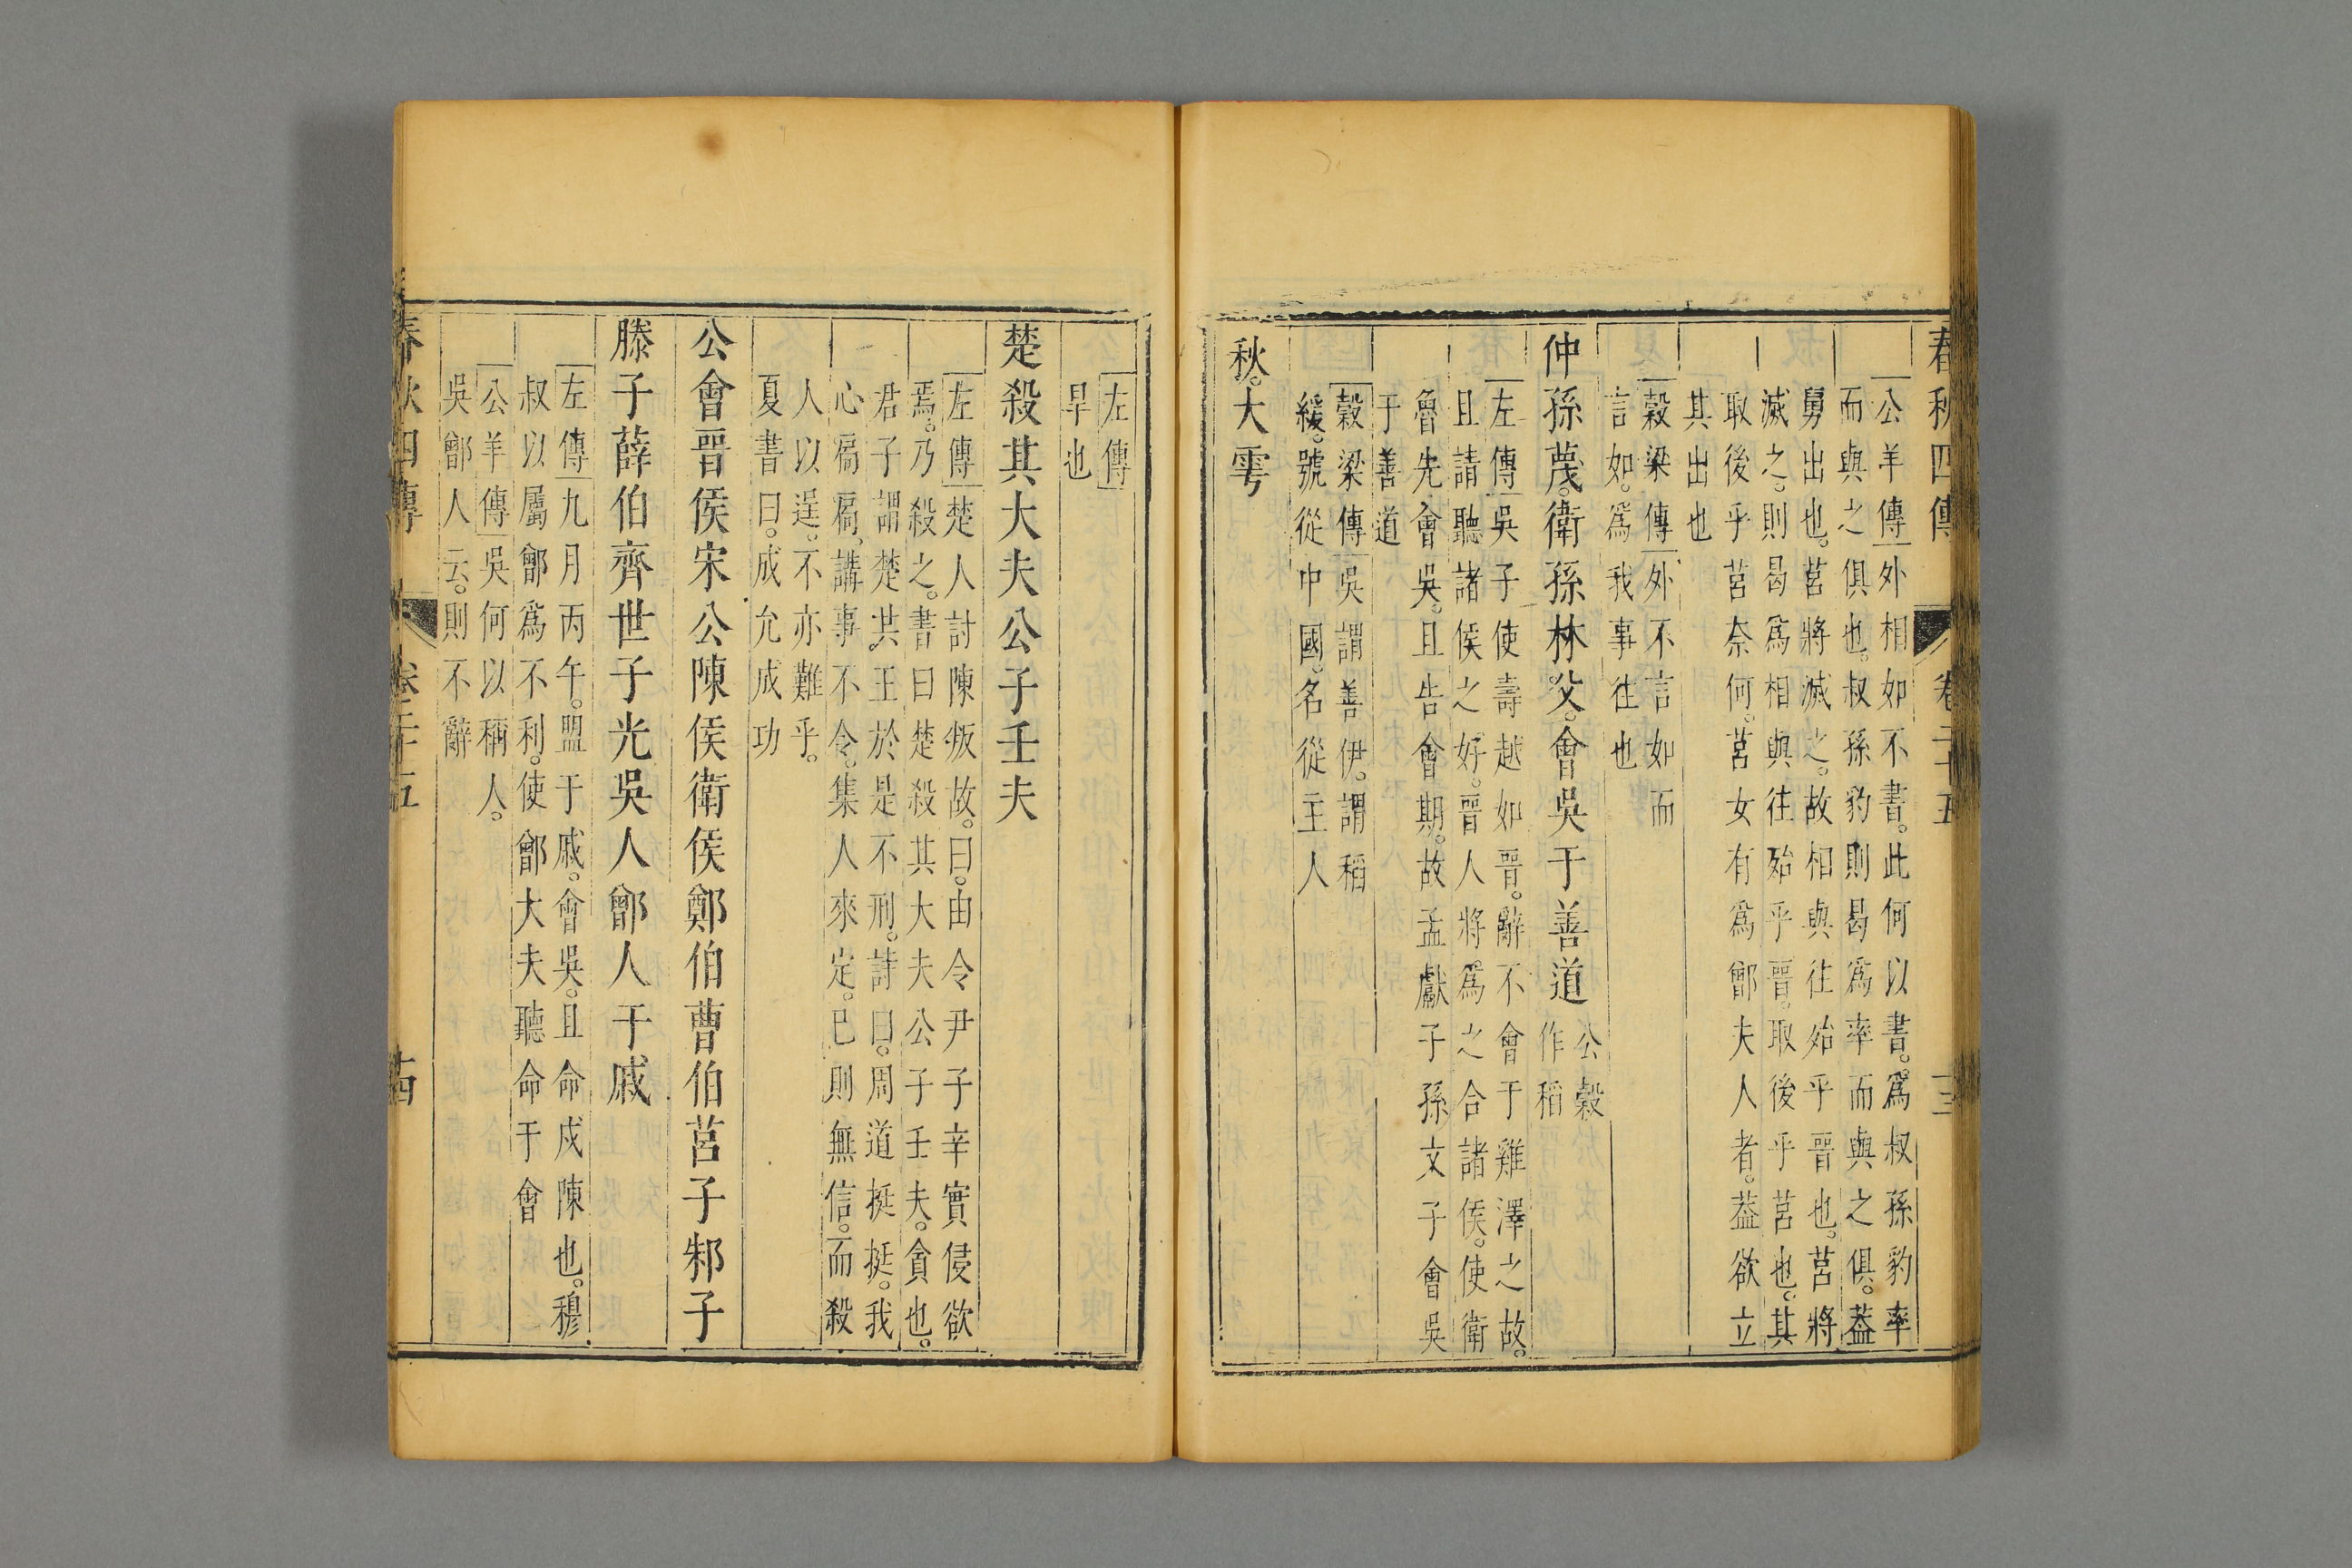 春秋四傳 卷二十五 十三
公羊傳外相如不書。此何以書。爲叔孫豹率
而與之俱也。叔孫豹則曷爲率而與之俱。葢
舅出也。莒將滅之。故相與往殆乎晉也。莒將
滅之。則曷爲相與往殆乎晉。取後乎莒也。其
取後乎莒奈何。莒女有爲鄫夫人者。葢欲立
其出也
穀梁傳外不言如而
言如。爲我事往也
仲孫蔑。衛孫林父。會吳于善道 公穀
作稻
左傳吳子使壽越如晉。辭不會于雞澤之故。
且請聽諸侯之好。晉人將爲之合諸侯。使衛
魯先會吳。且告會期。故孟獻子孫文子會吳
于善道
穀梁傳吳謂善伊。謂稻
緩。號從中國。名從主人
秋。大雩
左傳
旱也
楚殺其大夫公子壬夫
左傳楚人討陳叛故。曰。由令尹子辛實侵欲
焉。乃殺之。書曰楚殺其大夫公子壬夫。貪也。
君子謂楚共王於是不刑。詩曰。周道挺挺。我
心扄扄。講事不令。集人來定。已則無信。而殺
人以逞。不亦難乎。
夏書曰。成允成功
公會晉侯宋公陳侯衛侯鄭伯曹伯莒子邾子
滕子薛伯齊世子光吳人鄫人于戚
左傳九月丙午。盟于戚。會吳。且命戍陳也。穆
叔以屬鄫爲不利。使鄫大夫聽命于會
公羊傳吳何以稱人。
吳鄫人云。則不辭
春秋四傳 卷二十五 十四